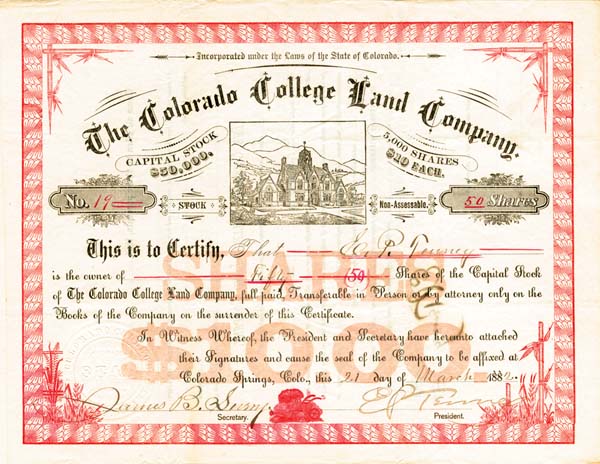 Incorporated under the Laws of the State of Colorado.
The Colorado College Land Company.
CAPITAL STOCK
$50,000.
5,000 SHARES
$10 EACH.
No. 19
STOCK
Non-Assessable.
50 Shares
This is to Certify, That E. P. Tenney
is the owner of Fifty (50) Shares of the Capital Stock
of The Colorado College Land Company, full paid, Transferable in Person or by attorney only on the
Books of the Company on the surrender of this Certificate.
SHARES
$10.00
In Witness Whereof, the President and Secretary have hereunto attached
their Signatures and cause the seal of the Company to be affixed at
Colorado Springs, Colo., this 21 day of March 1882.
James B.
Secretary.
E P Tenney
President.